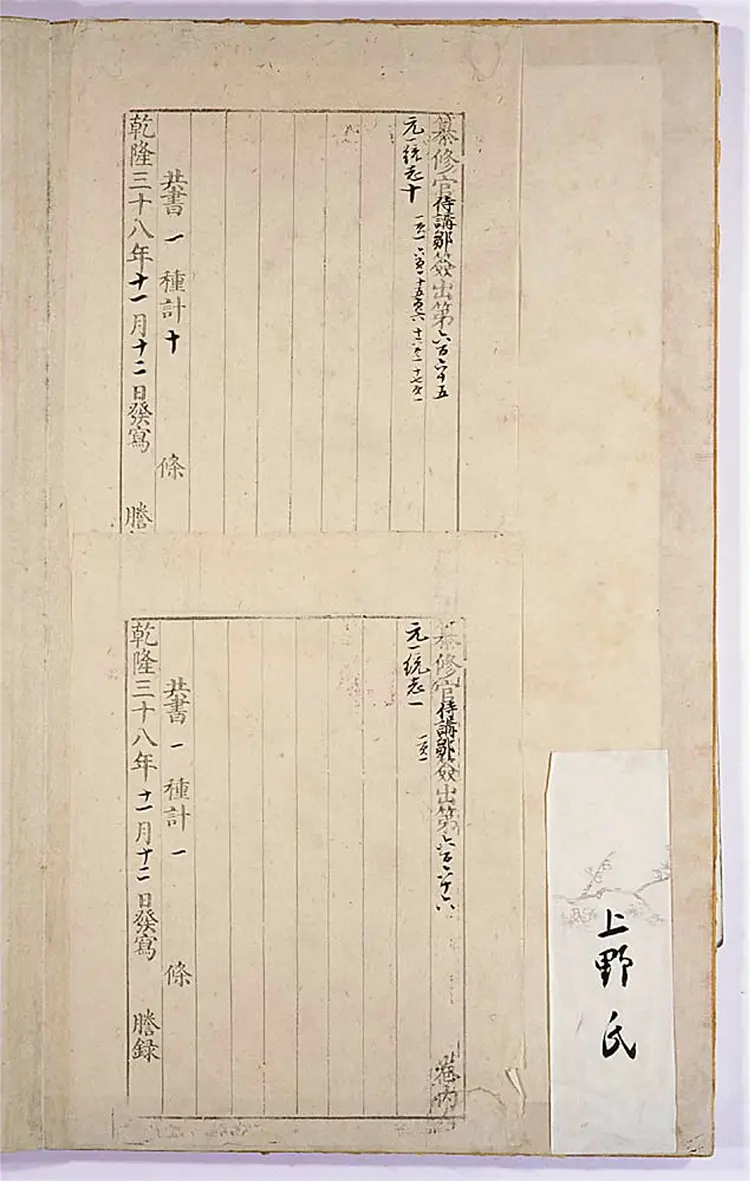 纂修官侍講鄒簽出第六百六十五
元一統志十 一頁一 六頁一 十五頁六 十六頁一 十七頁一
共書一種計十 條
乾隆三十八年十一月十二日發寫 謄
纂修官侍講鄒簽出第六百六十六 卷內
元一統志一 一頁一
共書一種計一 條
乾隆三十八年十一月十二日發寫 謄録
上野氏